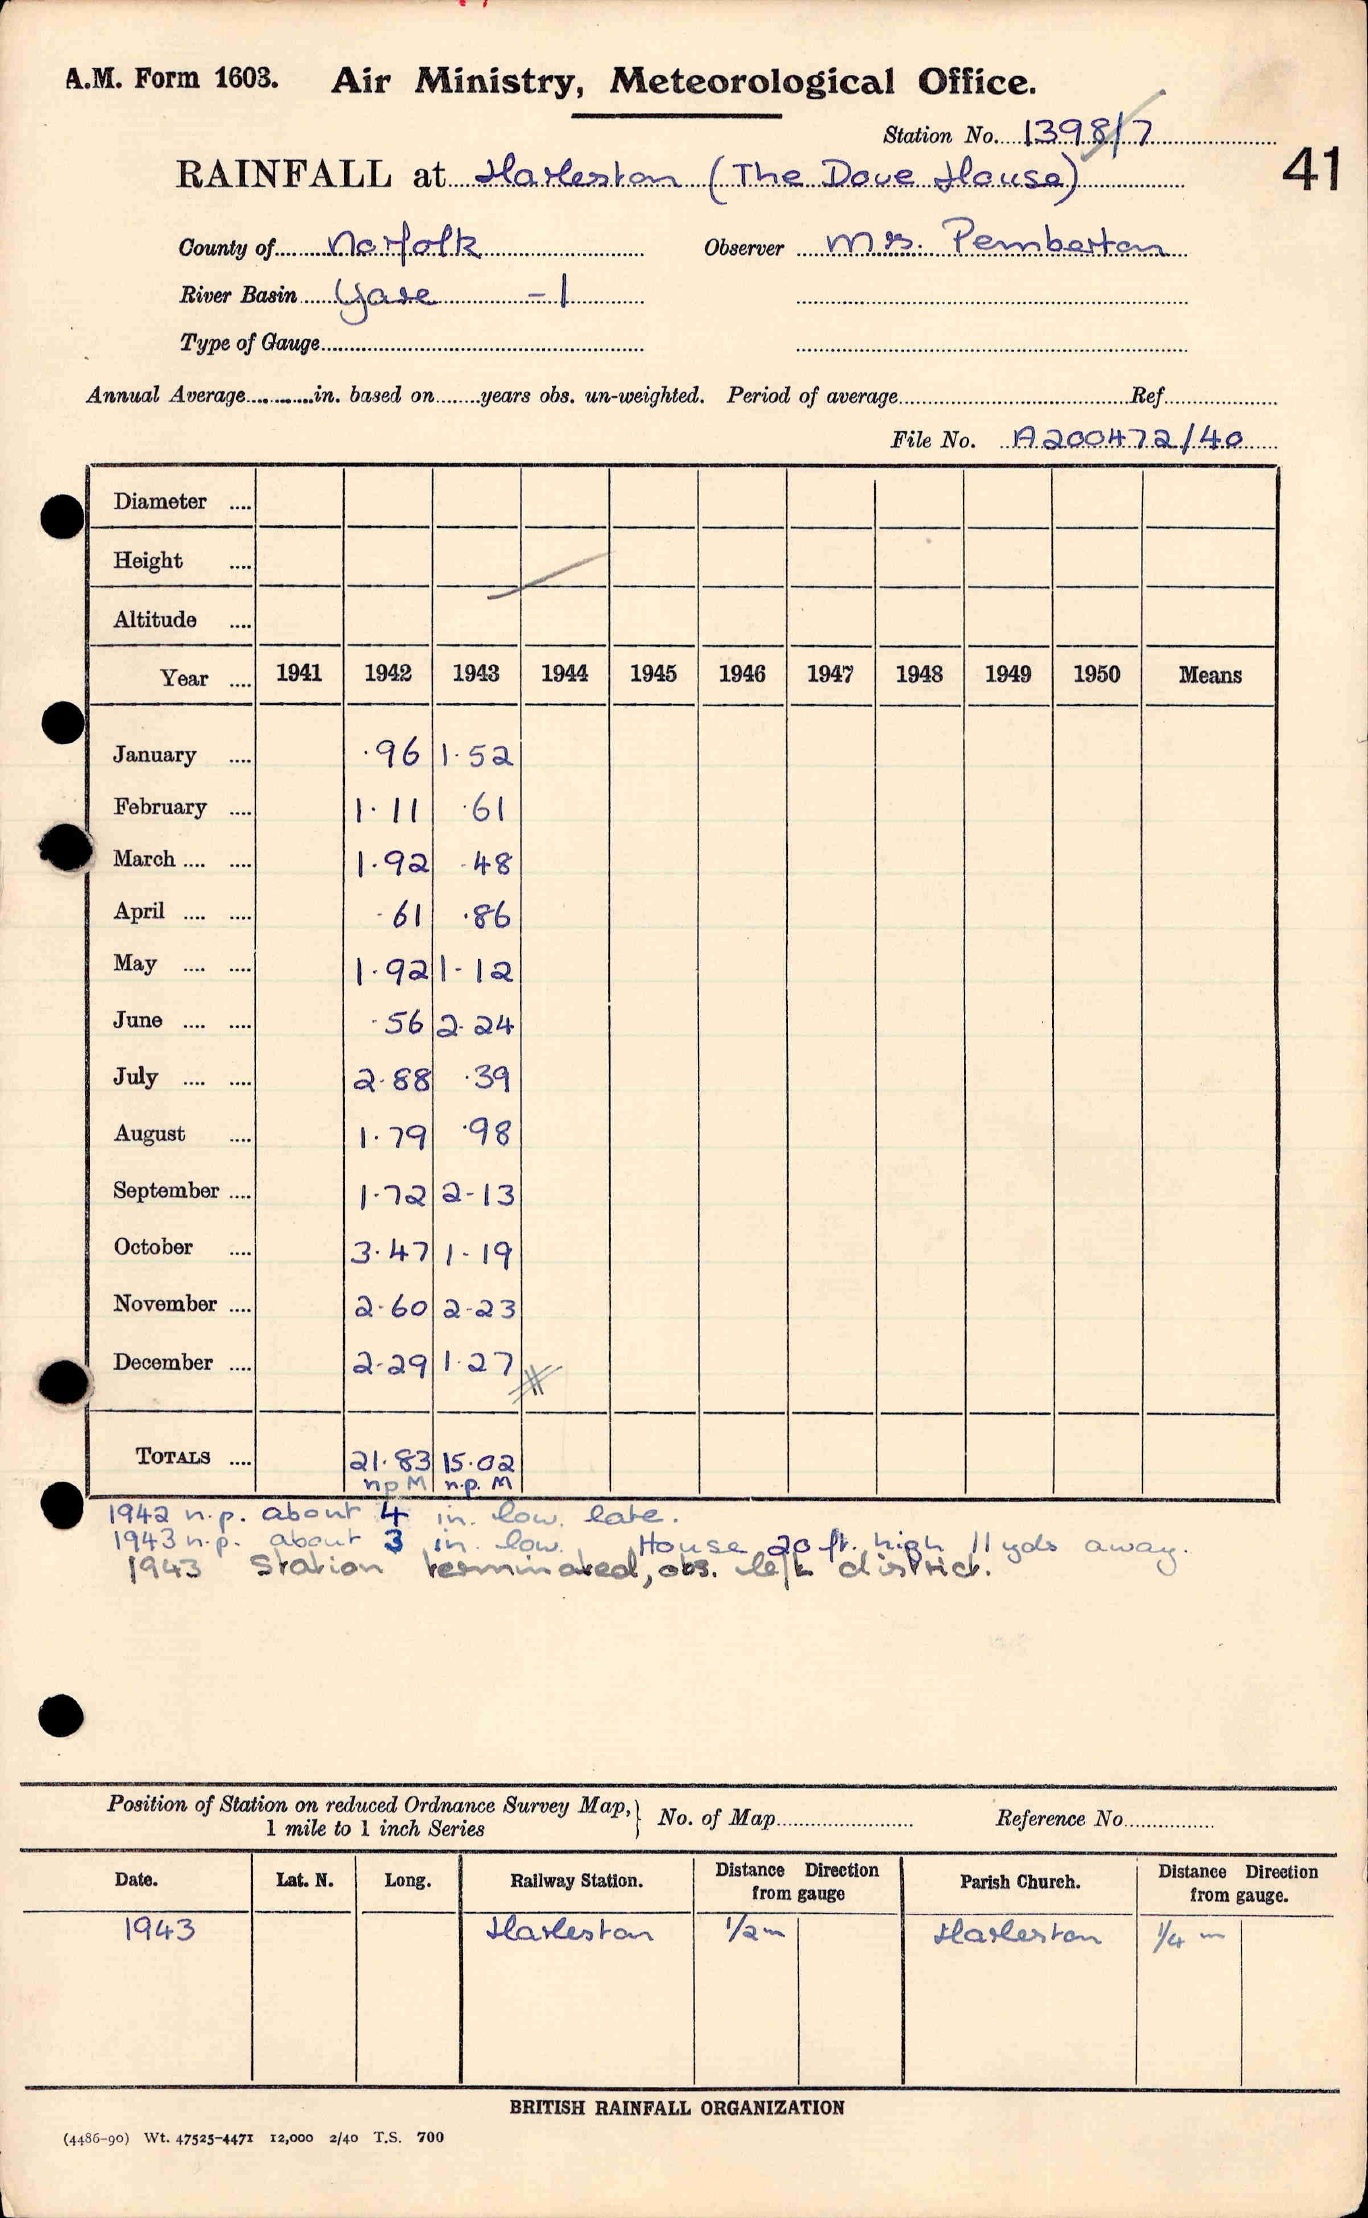 A.M. Form 1603. Air Ministry, Meteorological Office.
Station No. 1398/7
41
RAINFALL at Harleston (The Dove House)
County of Norfolk Observer Mrs. Pemberton
River Basin Yare -1
Type of Gauge
Annual Average in. based on years obs. un-weighted. Period of average Ref.
File No. A200472/40
Diameter ....
Height ....
Altitude ....
Year .... 1941 1942 1943 1944 1945 1946 1947 1948 1949 1950 Means
January .... .96 1.52
February .... 1.11 .61
March .... .... 1.92 .48
April .... .... .61 .86
May .... .... 1.92 1.12
June .... .... .56 2.24
July .... .... 2.88 .39
August .... 1.79 .98
September .... 1.72 2.13
October .... 3.47 1.19
November .... 2.60 2.23
December .... 2.29 1.27
TOTALS .... 21.83 15.02
npM n.p. M
1942 n.p. about 4 in. low. late.
1943 n.p. about 3 in. low. House 20 ft. high 11 yds away.
1943 Station terminated, obs. left district.
Position of Station on reduced Ordnance Survey Map,} No. of Map Reference No.
1 mile to 1 inch Series
Date. Lat. N. Long. Railway Station. Distance Direction from gauge Parish Church. Distance Direction from gauge.
1943 Harleston 1/2 m Harleston 1/4 m
BRITISH RAINFALL ORGANIZATION
(4486-90) Wt. 47525-4471 12,000 2/40 T.S. 700